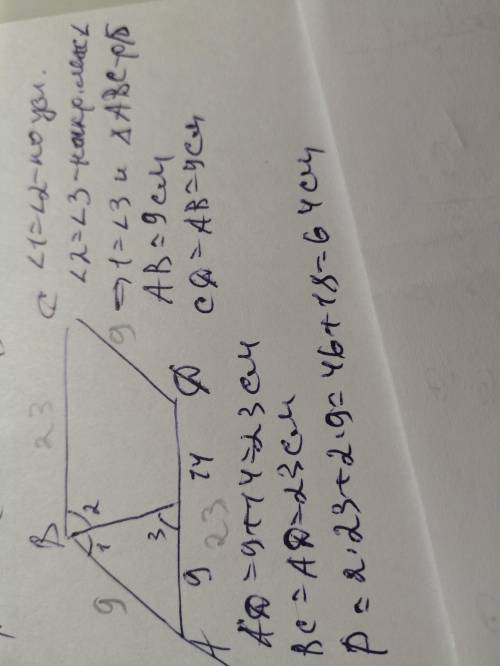 B
C
23
9
1
2
3
9
A
9
14
D
23
∠1=∠2-по усл.
∠2=∠3-накр. леж ∠
⇒ 1=∠3 и △ABC-р/б
AB=9 см
CD=AB=9 см
AD=9+14=23 см
BC=AD=23 см
P=2·23+2·9=46+18=64 см